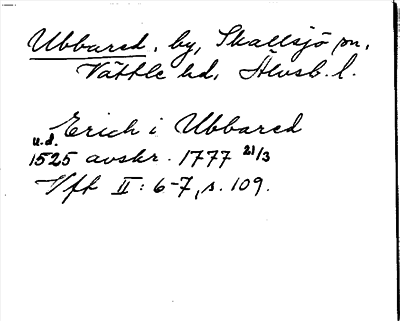 Ubbared, by, Skallsjö sn,
Vättle hd, Älvsb. l.
Erich i Ubbared
u.d.
1525 avskr. 1777 21/3
Vft II: 6-7, s. 109.